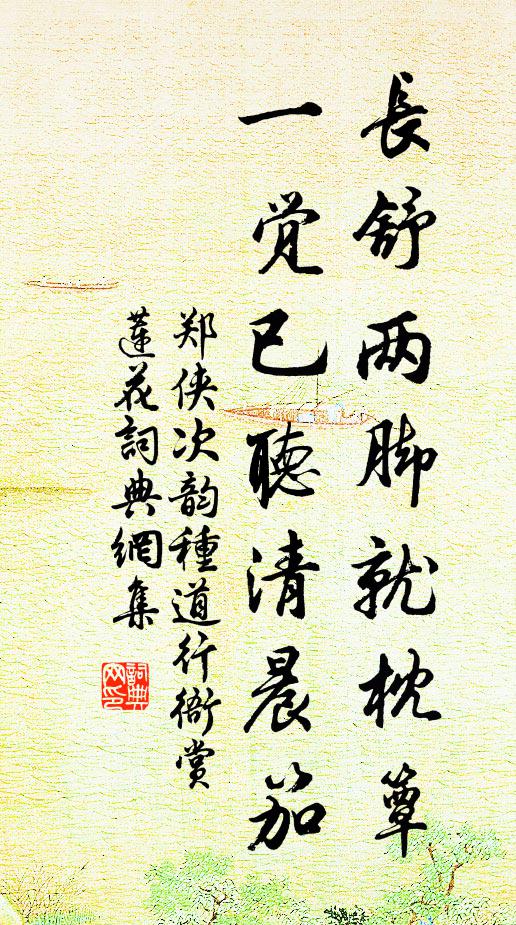 長舒两脚就枕簟
一覚已聽清晨笳
郑侠次韵種道行衙赏
蓮花詞典網集
詞典
网印